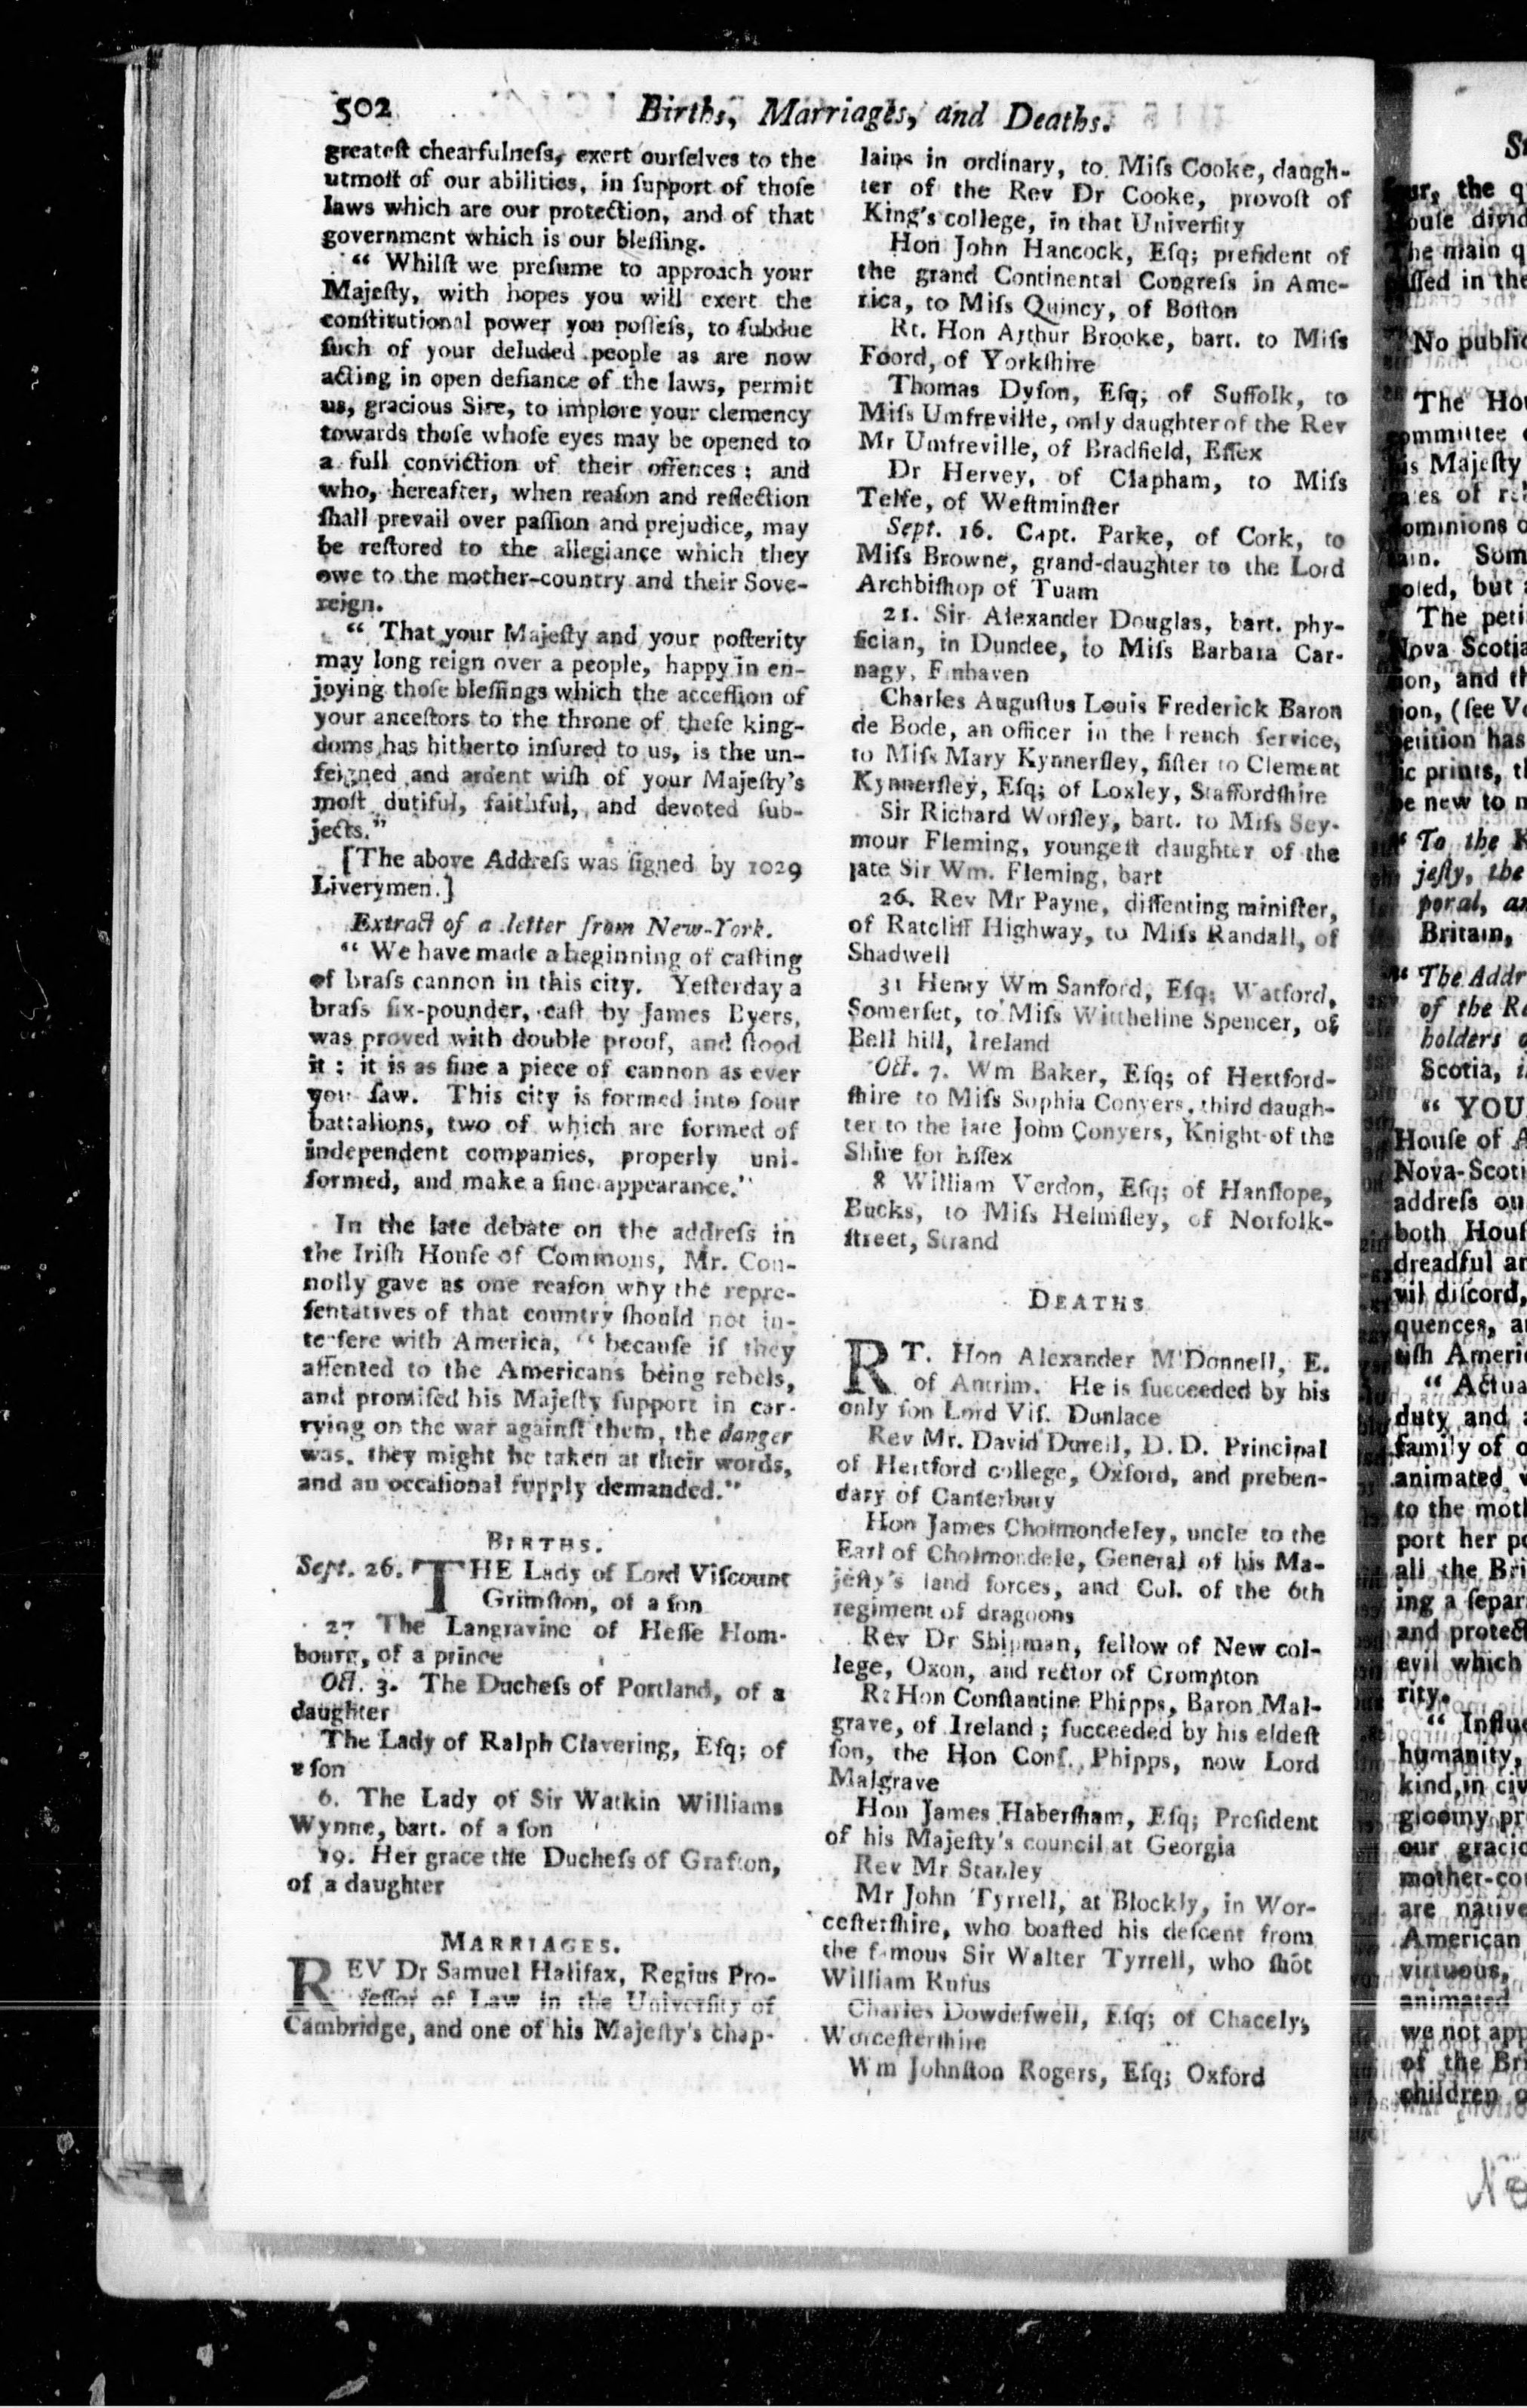 502
Births, Marriages, and Deaths.
greateſt chearfulneſs, exert ourſelves to the
utmoſt of our abilities, in ſupport of thoſe
laws which are our protection, and of that
government which is our bleſſing.
“ Whilſt we preſume to approach your
Majeſty, with hopes you will exert the
conſtitutional power you poſſeſs, to ſubdue
ſuch of your deluded people as are now
acting in open defiance of the laws, permit
us, gracious Sire, to implore your clemency
towards thoſe whoſe eyes may be opened to
a full conviction of their offences ; and
who, hereafter, when reaſon and reflection
ſhall prevail over paſſion and prejudice, may
be reſtored to the allegiance which they
owe to the mother-country and their Sove-
reign.
“ That your Majeſty and your poſterity
may long reign over a people, happy in en-
joying thoſe bleſſings which the acceſſion of
your anceſtors to the throne of theſe king-
doms has hitherto inſured to us, is the un-
feigned and ardent wiſh of your Majeſty's
moſt dutiful, faithful, and devoted ſub-
jects.”
[The above Addreſs was ſigned by 1029
Liverymen.]
Extract of a letter from New-York.
“ We have made a beginning of caſting
of braſs cannon in this city. Yeſterday a
braſs ſix-pounder, caſt by James Byers,
was proved with double proof, and ſtood
it : it is as fine a piece of cannon as ever
you ſaw. This city is formed into four
battalions, two of which are formed of
independent companies, properly uni-
formed, and make a fine appearance.”
In the late debate on the addreſs in
the Iriſh Houſe of Commons, Mr. Con-
nolly gave as one reaſon why the repre-
ſentatives of that country ſhould not in-
terfere with America, “ becauſe if they
aſſented to the Americans being rebels,
and promiſed his Majeſty ſupport in car-
rying on the war againſt them, the danger
was, they might be taken at their words,
and an occaſional ſupply demanded.”
BIRTHS.
Sept. 26. THE Lady of Lord Viſcount
Grimſton, of a ſon
27 The Langravine of Heſſe Hom-
bourg, of a prince
Oct. 3. The Ducheſs of Portland, of a
daughter
The Lady of Ralph Clavering, Eſq; of
a ſon
6. The Lady of Sir Watkin Williams
Wynne, bart. of a ſon
19. Her grace the Ducheſs of Grafton,
of a daughter
MARRIAGES.
REV Dr Samuel Halifax, Regius Pro-
feſſor of Law in the Univerſity of
Cambridge, and one of his Majeſty's chap-
lains in ordinary, to Miſs Cooke, daugh-
ter of the Rev Dr Cooke, provoſt of
King's college, in that Univerſity
Hon John Hancock, Eſq; preſident of
the grand Continental Congreſs in Ame-
rica, to Miſs Quincy, of Boſton
Rt. Hon Arthur Brooke, bart. to Miſs
Foord, of Yorkſhire
Thomas Dyſon, Eſq; of Suffolk, to
Miſs Umfreville, only daughter of the Rev
Mr Umfreville, of Bradfield, Eſſex
Dr Hervey, of Clapham, to Miſs
Telfe, of Weſtminſter
Sept. 16. Capt. Parke, of Cork, to
Miſs Browne, grand-daughter to the Lord
Archbiſhop of Tuam
21. Sir Alexander Douglas, bart. phy-
ſician, in Dundee, to Miſs Barbara Car-
nagy, Finhaven
Charles Auguſtus Louis Frederick Baron
de Bode, an officer in the French ſervice,
to Miſs Mary Kynnerſley, ſiſter to Clement
Kynnerſley, Eſq; of Loxley, Staffordſhire
Sir Richard Worſley, bart. to Miſs Sey-
mour Fleming, youngeſt daughter of the
late Sir Wm. Fleming, bart
26. Rev Mr Payne, diſſenting miniſter,
of Ratcliff Highway, to Miſs Randall, of
Shadwell
31 Henry Wm Sanford, Eſq; Watford,
Somerſet, to Miſs Wittheline Spencer, of
Bell hill, Ireland
Oct. 7. Wm Baker, Eſq; of Hertford-
ſhire to Miſs Sophia Conyers, third daugh-
ter to the late John Conyers, Knight of the
Shire for Eſſex
8 William Verdon, Eſq; of Hanſlope,
Bucks, to Miſs Helmſley, of Norfolk-
ſtreet, Strand
DEATHS
RT. Hon Alexander M'Donnell, E.
of Antrim. He is ſucceeded by his
only ſon Lord Viſ. Dunlace
Rev Mr. David Durell, D.D. Principal
of Hertford college, Oxford, and preben-
dary of Canterbury
Hon James Cholmondeley, uncle to the
Earl of Cholmondele, General of his Ma-
jeſty's land forces, and Col. of the 6th
regiment of dragoons
Rev Dr Shipman, fellow of New col-
lege, Oxon, and rector of Crompton
Rt Hon Conſtantine Phipps, Baron Mal-
grave, of Ireland ; ſucceeded by his eldeſt
ſon, the Hon Conſ. Phipps, now Lord
Malgrave
Hon James Haberſham, Eſq; Preſident
of his Majeſty's council at Georgia
Rev Mr Stanley
Mr John Tyrrell, at Blockly, in Wor-
ceſterſhire, who boaſted his deſcent from
the famous Sir Walter Tyrrell, who ſhot
William Rufus
Charles Dowdeſwell, Eſq; of Chacely,
Worceſterſhire
Wm Johnſton Rogers, Eſq; Oxford
the q
divid
The main q
in the
No public
The Hou
Majeſty
of
Som
but
The peti
Nova Scotia
and th
(ſee V
petition has
prints, t
be new to m
“ To the K
jeſty, the
poral, an
Britain,
“ The Addr
of the Re
holders o
Scotia, i
“ YOU
Houſe of A
Nova-Scoti
addreſs ou
both Houſ
dreadful an
diſcord,
quences, a
Ameri
“ Actua
duty and a
family of o
animated v
to the moth
port her po
all the Bri
ing a ſepar
and protect
evil which
rity.
“ Influ
humanity,
kind, in civ
gloomy pr
our gracio
mother-cou
are native
American
virtuous,
animated
we not app
of the Bri
children o